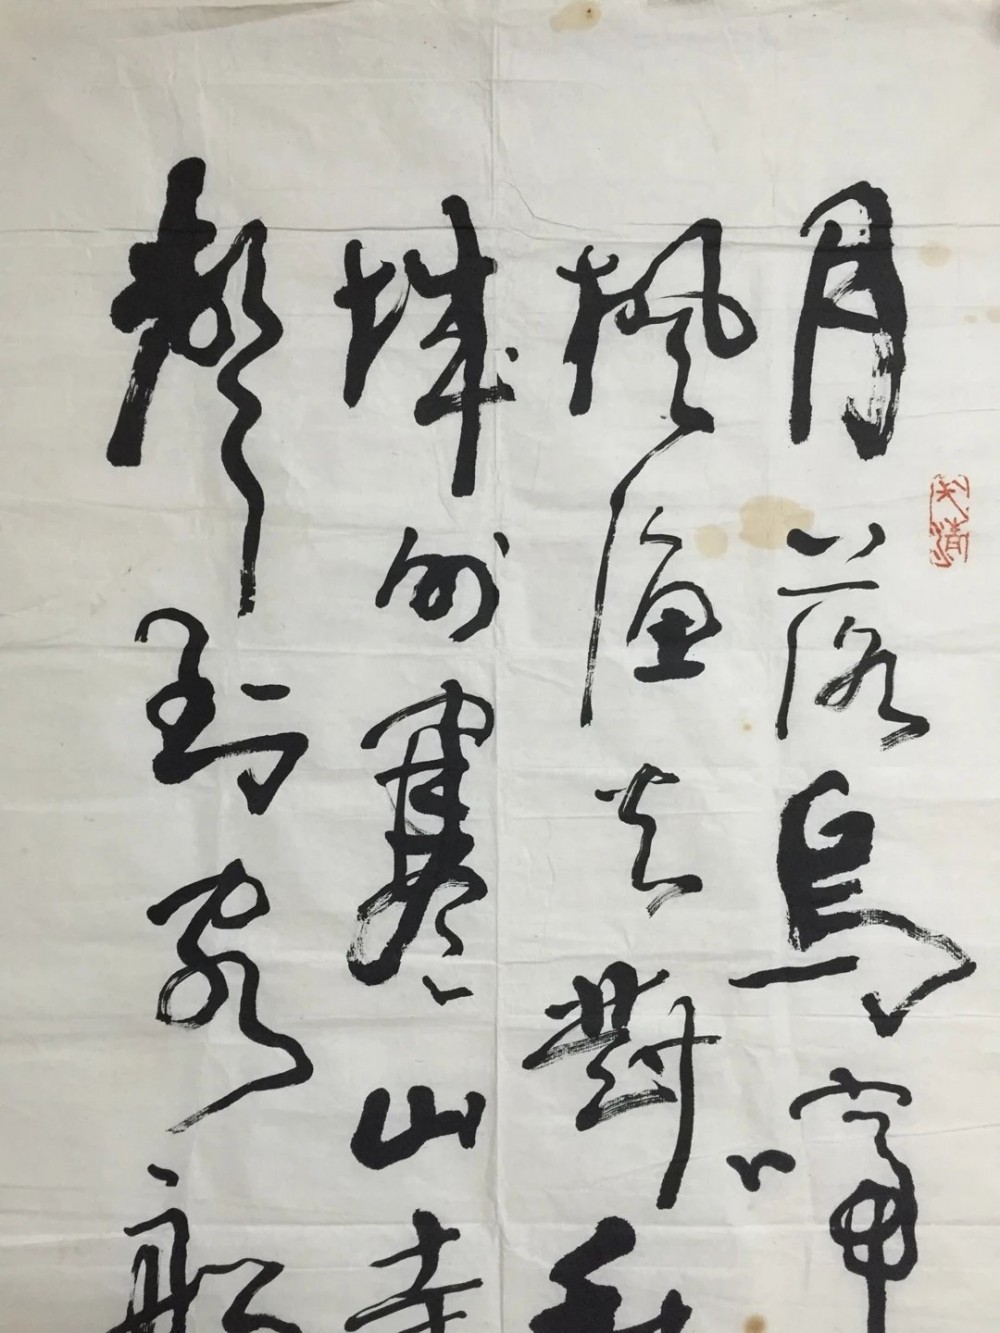 月落烏啼
楓漁火對愁
城外寒山寺
聲到客船